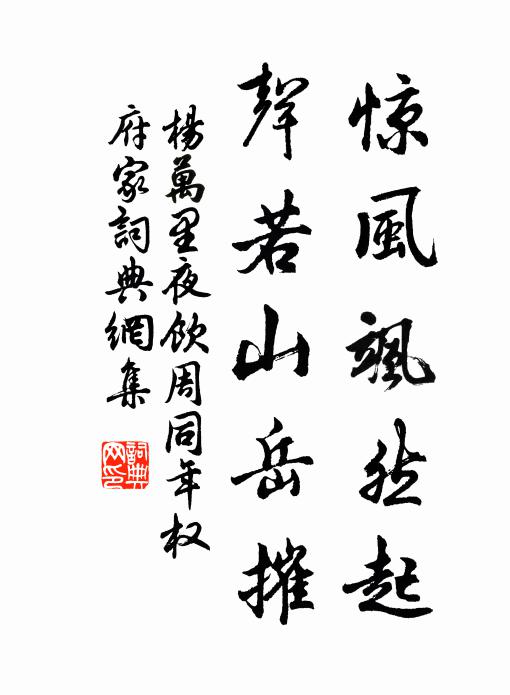 惊風颯然起
聲若山岳摧
楊萬里夜飲周同年权
府家詞典網集
詞典网印